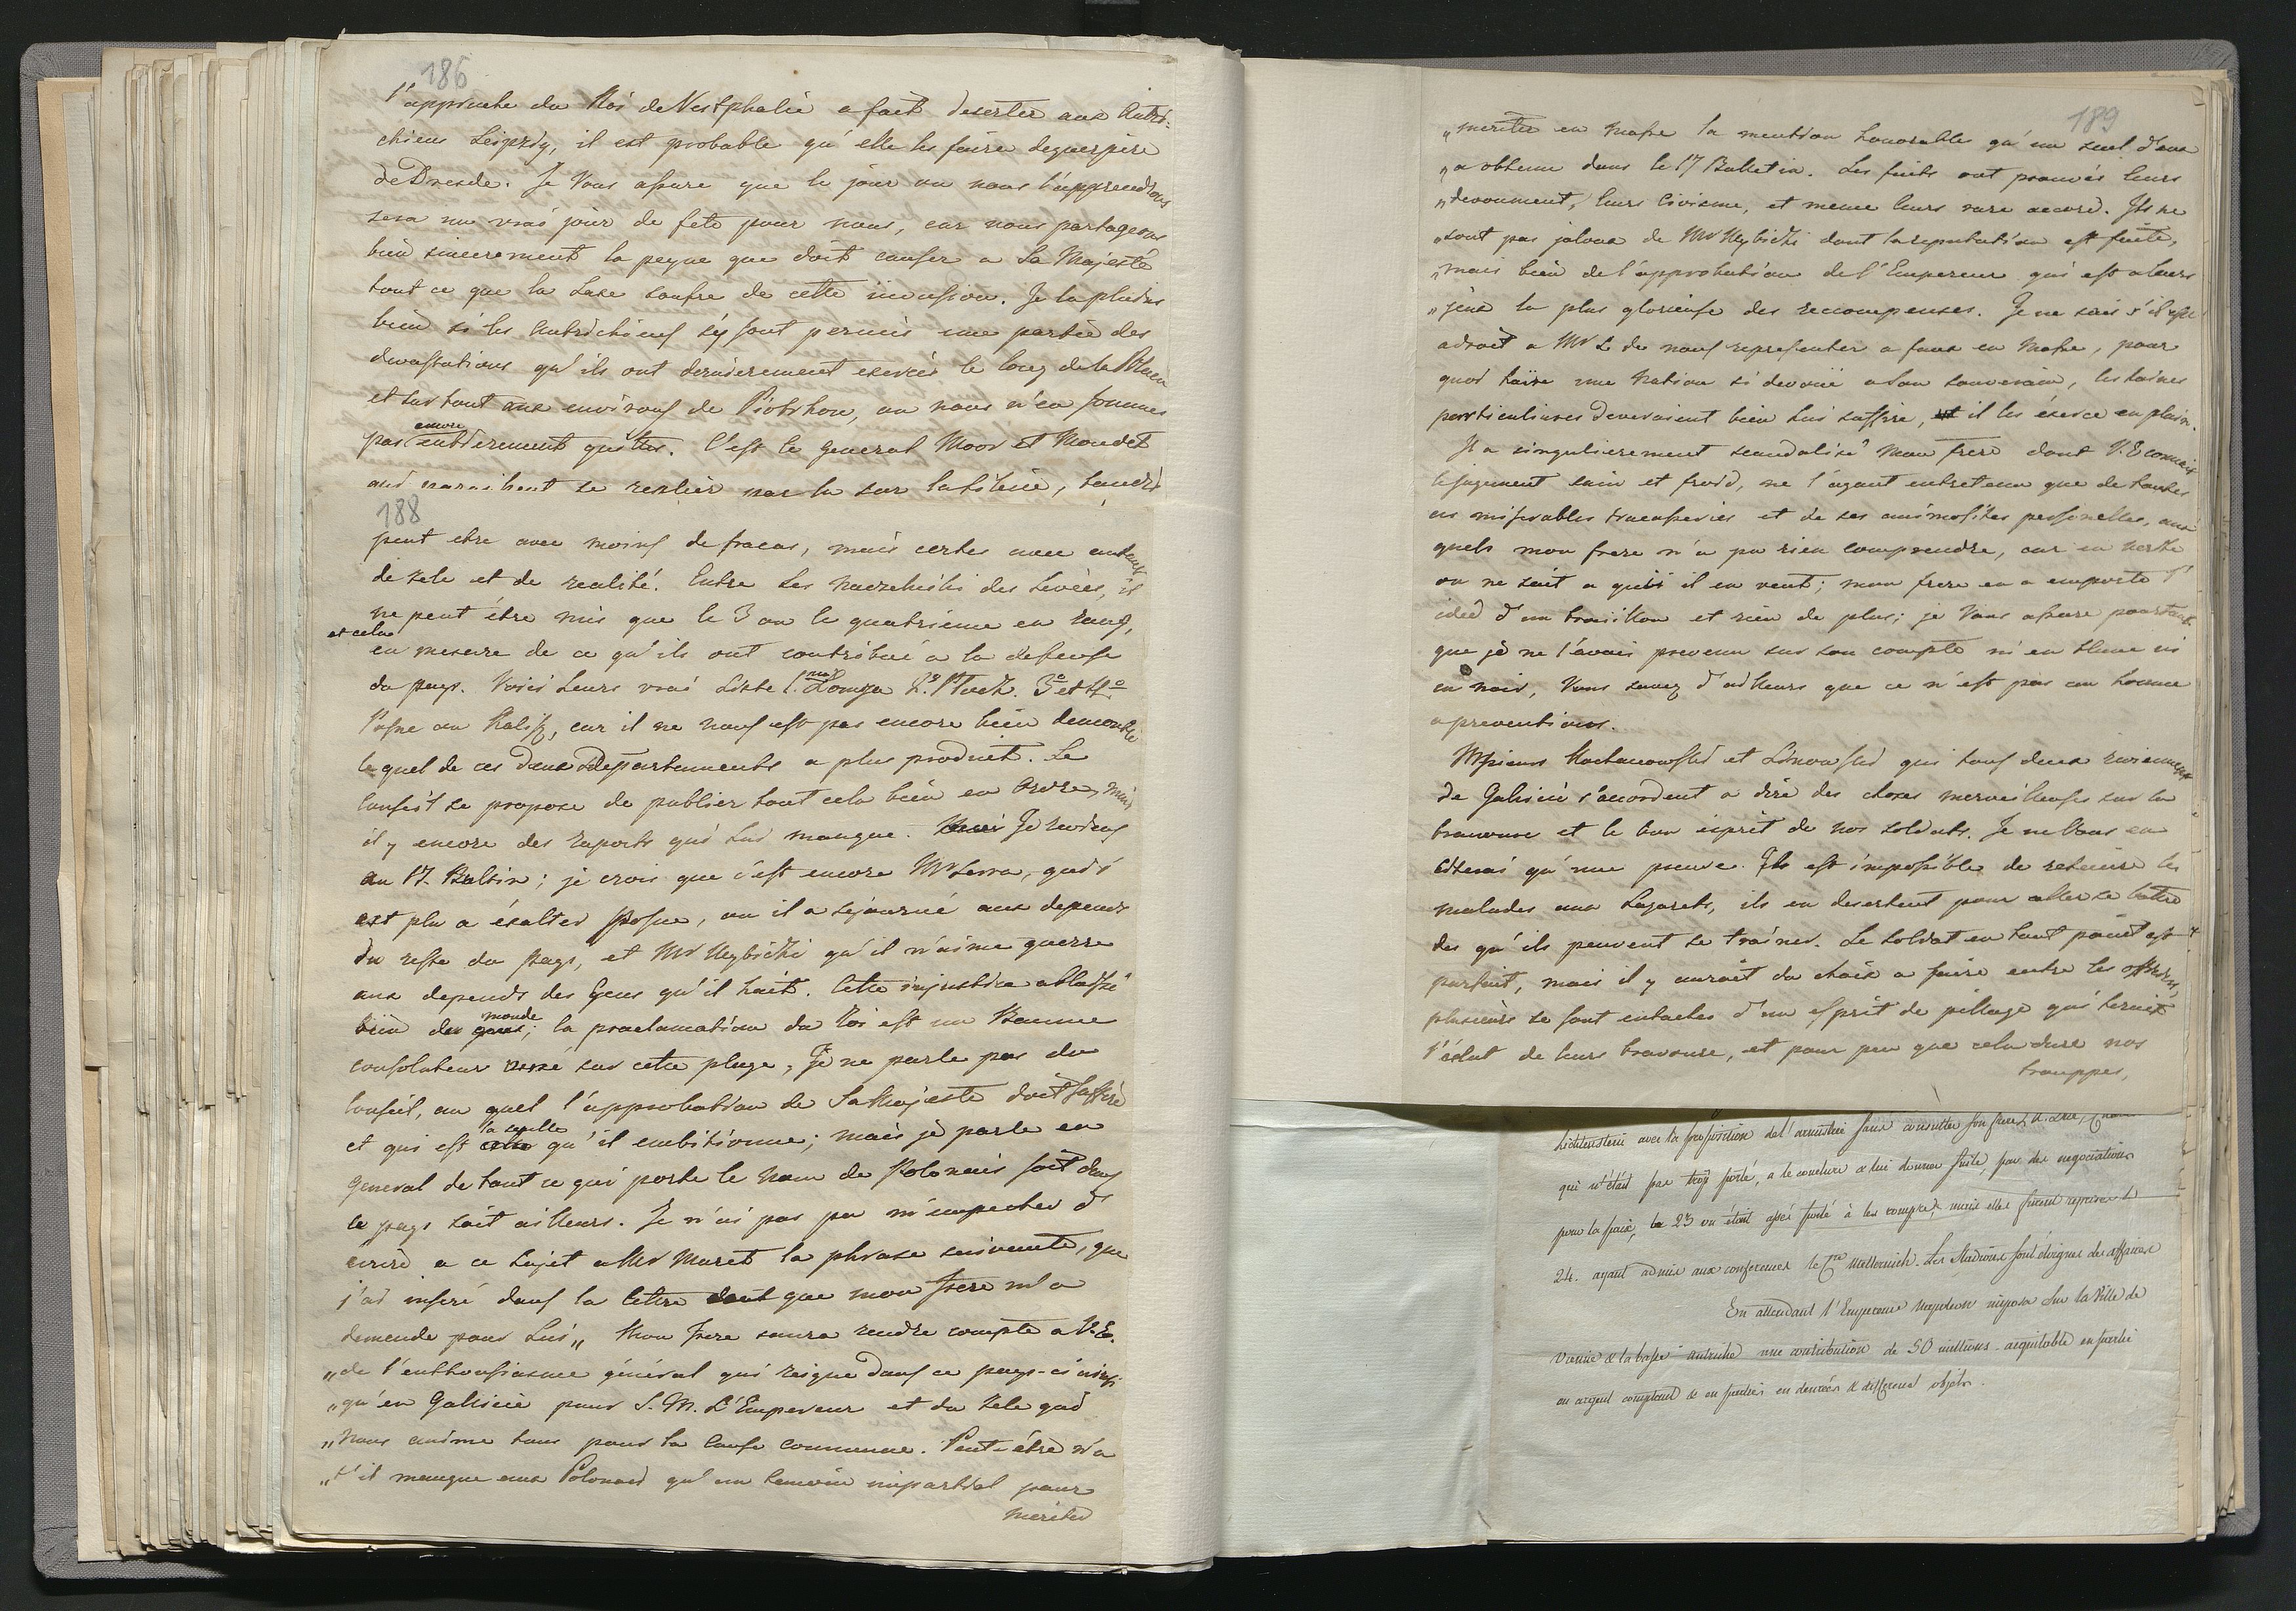 186
l'approche du Roi de Westphalie a fait deserter aux Autri-
chiens Leipzig, il est probable qu'elle les faire deguerpire
de Dresde. Je Vous assure que le jour ou nous l'apprendrons
sera un vrai jour de fete pour nous, car nous partageons
bien sincerement la peyne que doit causer a Sa Majesté
tout ce que la Saxe soufre de cette incursion. Je la plains
bien si les Autrichiens s'y sont permis une partie des
devastations qu'ils ont dernierement exercés le long de la Pilica
et sur tout aux environs de Piotrkow, ou nous n'en sommes
pas encore entierement quittes. C'est le general Moor et Mondet
qui se replier par la sur la Silesie, tandis
188
peut etre avec moins de fracas, mais certes avec autant
de zele et de realité. Entre les des Levées, il
ne peut être mis que le 3 ou le quatrieme en rang,
et cela
en mesure de ce qu'ils ont contribué a la defense
du pays. Voici leurs vrai Liste 1.mo Lomza 2.o Plock. 3o et 4o
Posne ou Kalisz, car il ne nous est pas encore bien demontré
le quel de ces deux departements a plus produit. Le
Conseil se propose de publier tout cela bien en ordre, mais
il y encore des raports qui lui manque. Je reviens
au 17. Bultin; je crois que c'est encore Mr Serra, qui s'
est plu a éxalter Posne, ou il a sejourné aux depends
du reste du Pays, et Mr Wybicki qu'il n'aime guerre
aux depends des Gens qu'il hait. Cette injustice a blessé
bien du monde; la proclamation du Roi est un Baume
consolateur versé sur cette playe, Je ne parle pas du
Conseil, au quel l'approbation de Sa Majeste doit suffire
et qui est la seulle qu'il embitionne; mais je parle en
general de tout ce qui porte le nom de Polonais soit dans
le pays soit ailleurs. Je n'ai pas pu m'empecher d'
ecrire a ce sujet a Mr Maret la phrase suivante, que
j'ai inseré dans la lettre que mon frere m'a
demende pour Lui „ Mon frere saura rendre compte a V. E.
„de l'enthousiasme général qui reigne dans ce pays-ci ainsi
„qu'en Gallicie pour S. M. L'Empereur et du zele qui
„nous anime tous pour la Cause commune. Peut-être n'a
„t'il manque aux Polonais qu'un temoin impartial pour
meriter
189
„meriter en masse la mention honorable qu'un seul d'eux
„a obtenu dans le 17 Bulletin. Les faits ont prouvés leurs
„devoument, leurs Civisme, et meme leurs rare accord. Ils ne
„sont pas jaloux de Mr Wybicki dont la reputation est faite,
„mais bien de l'approbation de l'Empereur qui est a leurs
„yeux la plus glorieuse des recompenses. Je ne sais s'il est
adroit a Mr S de nous representer a faux en masse, pour
quoi haïre une Nation si devoué a son souverain, les haines
particulieres deveraient bien lui suffire, il les éxerce en plein.
Il a singulierement scandalisé mon frere dont V. E connait
le jugement sain et froid, ne l'ayant entretenu que de toutes
ces miserables tracasseries et de ses animosites personelles, aux
quels mon frere n'a pu rien comprendre, car en verite
on ne sait a qui il en veut; mon frere en a emporte l'
idée d'un brouillon et rien de plus; je Vous assure pourtant
que je ne l'avais prevenu sur son compte ni en blanc ni
en noir, Vous savez d'ailleurs que ce n'est pas un homme
a preventions.
Msieurs Kochanowski et Linowski qui tous deux reviennent
de Galicie s'accordent a dire des choses merveilleuses sur la
bravoure et le bon esprit de nos soldats. Je ne Vous en
citerai qu'une preuve. Il est impossible de retenire les
malades aux Lazarets, ils en desertent pour aller se battre
des qu'ils peuvent se trainer. Le soldat en tout point est
parfait, mais il y aurait du choix a faire entre les officiers,
plusieurs se sont entachés d'un esprit de pillage qui ternit
l'éclat de leurs bravoure, et pour peu que cela dure nos
trouppes,
Lichtenstein avec la proposition de l'armistice sans consulter son frere
qui n'était pas trop porté, a le conclure & lui donner suite, par des negociations
pour la paix, le 23 on était assé porté à les rompre, mais elles furent reprises le
24. ayant admis aux conferences le Cte Metternich. Les Stadions sont éloignés des affaires
En attendant l'Empereur Napoleon imposa sur la Ville de
Vienne & la basse autriche une contribution de 50 millions acquitable en partie
en argent comptant & en partie en denrées & different objets.